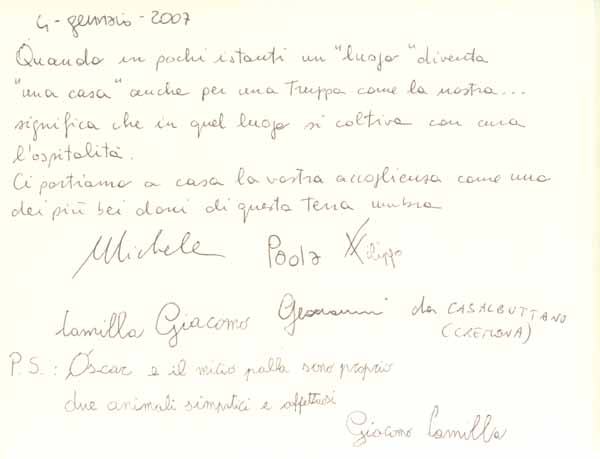 4 - gennaio - 2007
Quando in pochi istanti un "luogo" diventa
"una casa" anche per una truppa come la nostra...
significa che in quel luogo si coltiva con cura
l'ospitalità.
Ci portiamo a casa la vostra accoglienza come uno
dei più bei doni di questa terra umbra
Michele Paola Filippo
Camilla Giacomo Giovanni da CASALBUTTANO
(CREMONA)
P.S.: Oscar e il micio palla sono proprio
due animali simpatici e affettuosi
Giacomo Camilla